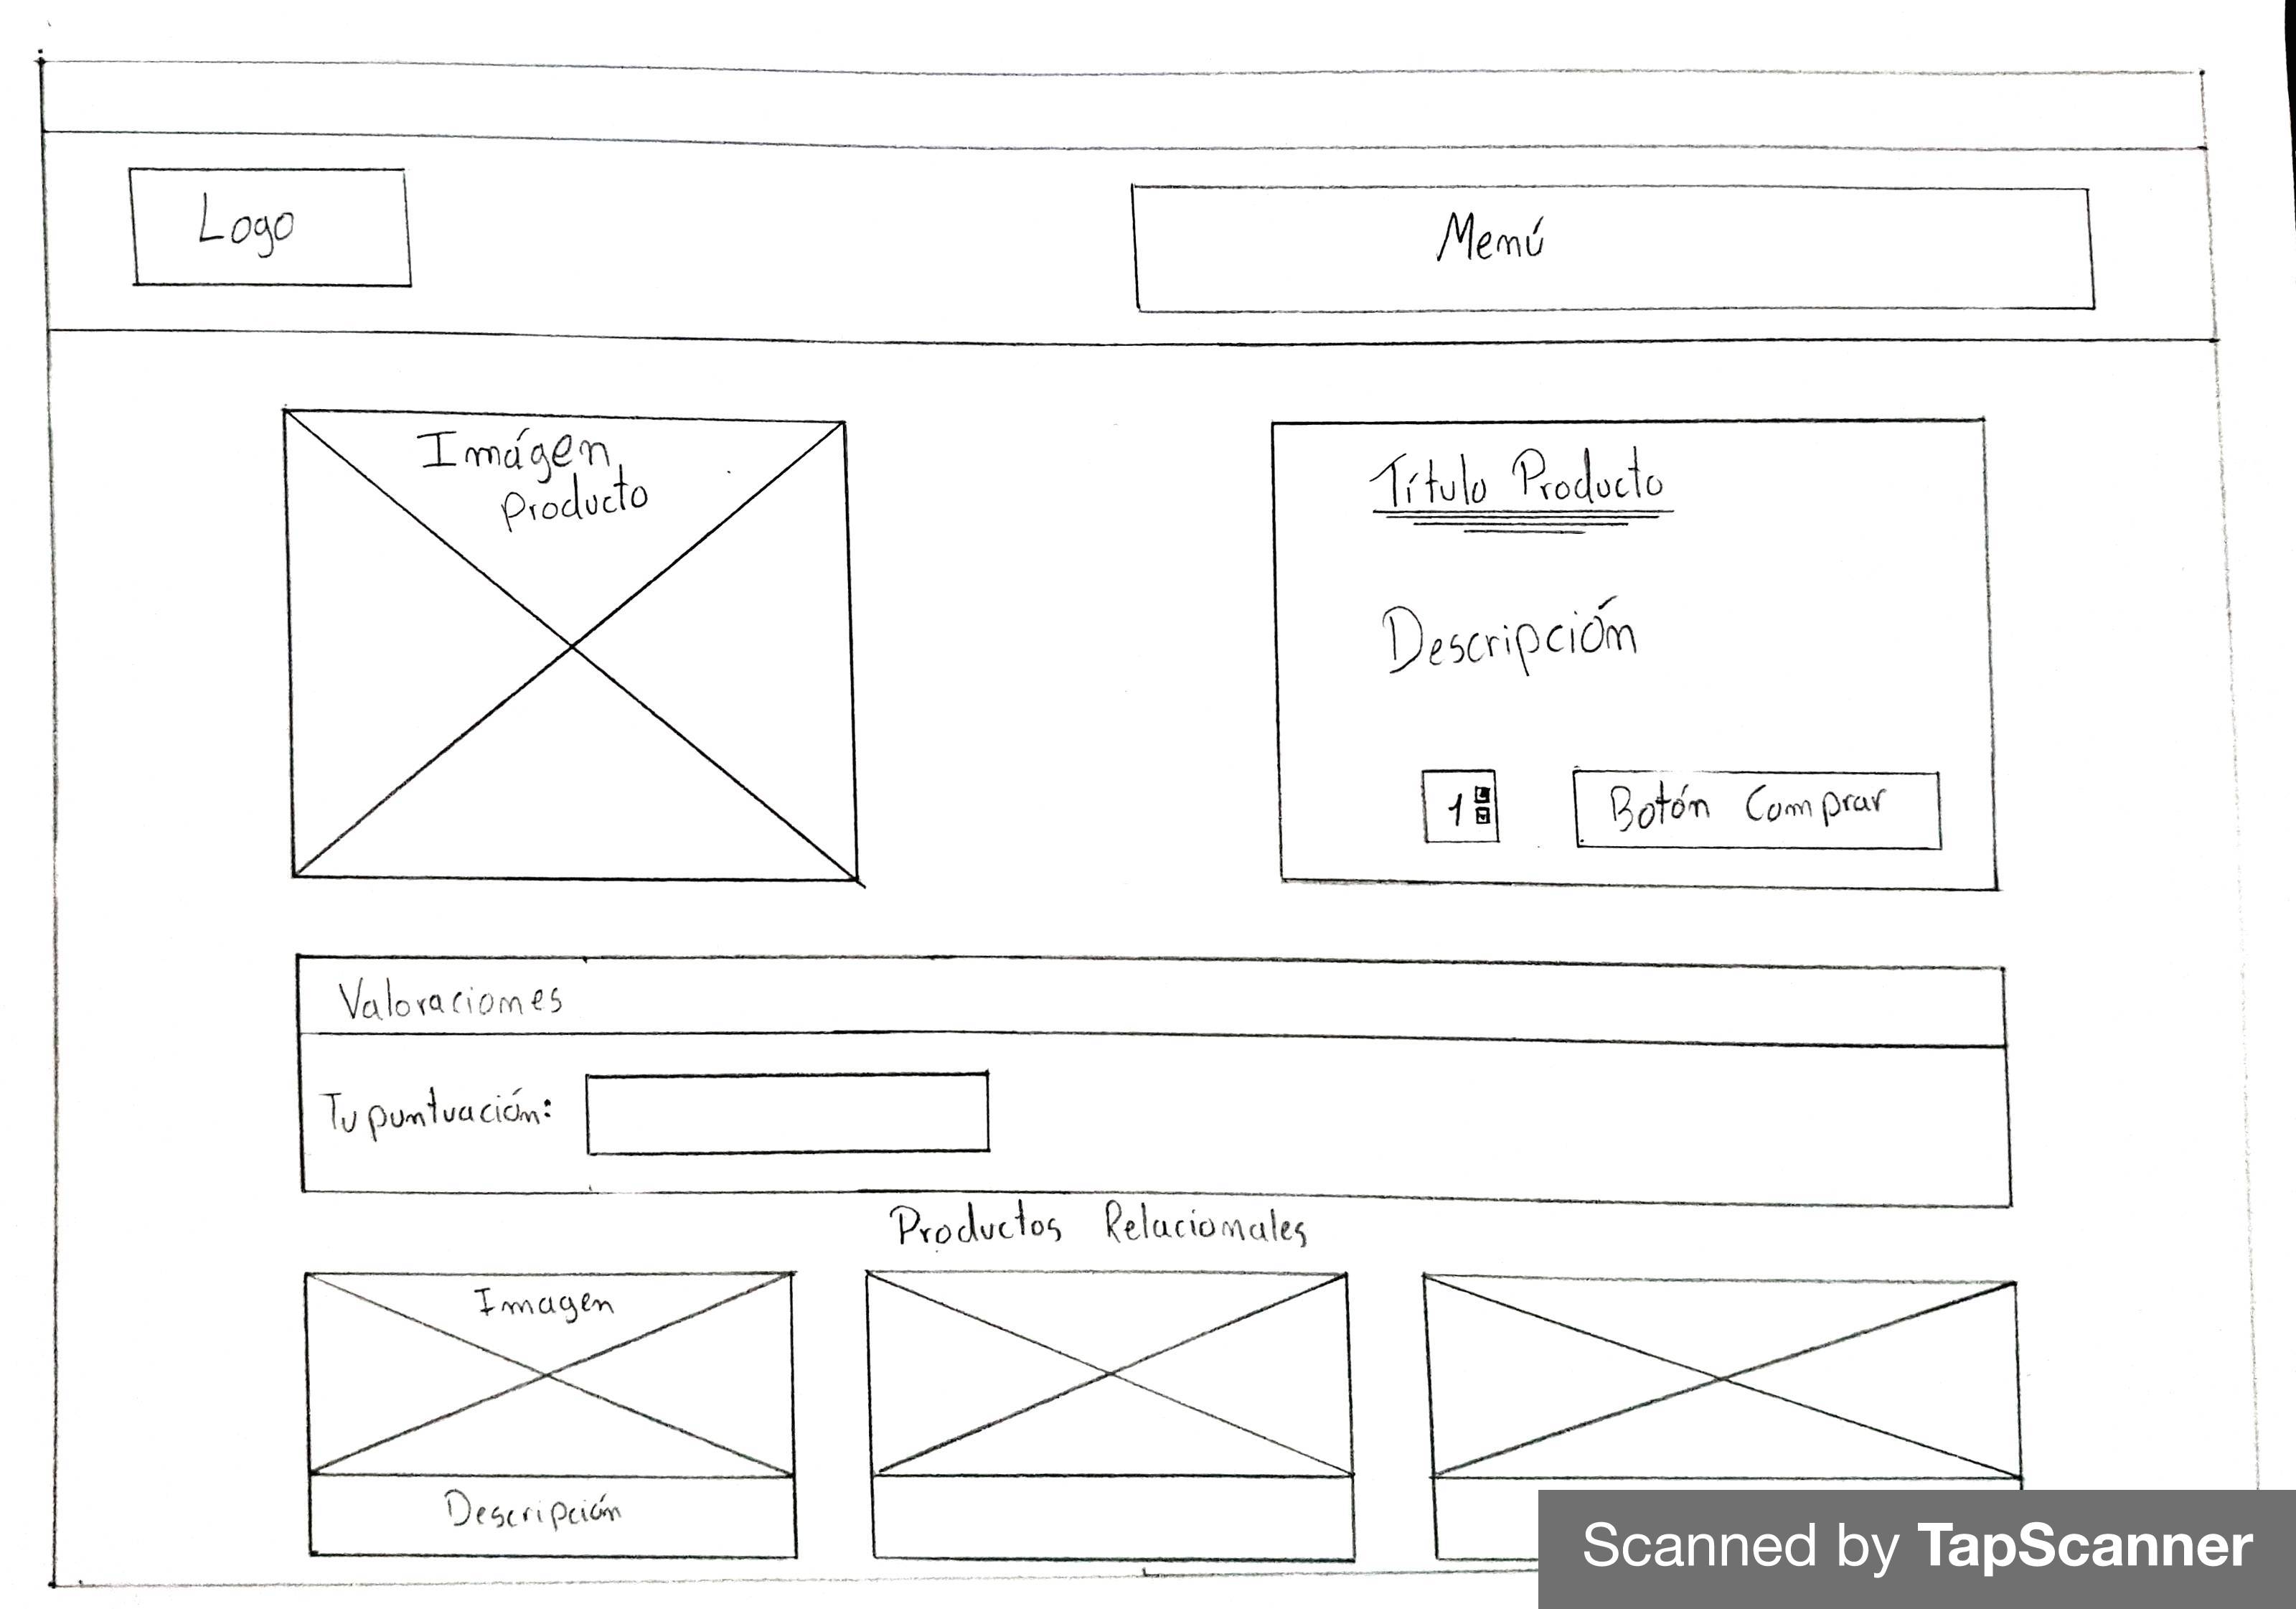 Logo
Menú
Imágen
Producto
Título Producto
Descripción
1
Botón Comprar
Valoraciones
Tu puntuación:
Productos Relacionales
Imagen
Descripción
Scanned by TapScanner